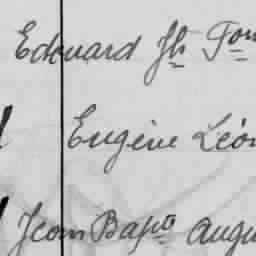 Edouard Jh Fon
Eugène Léon
Jean Bapte Augu